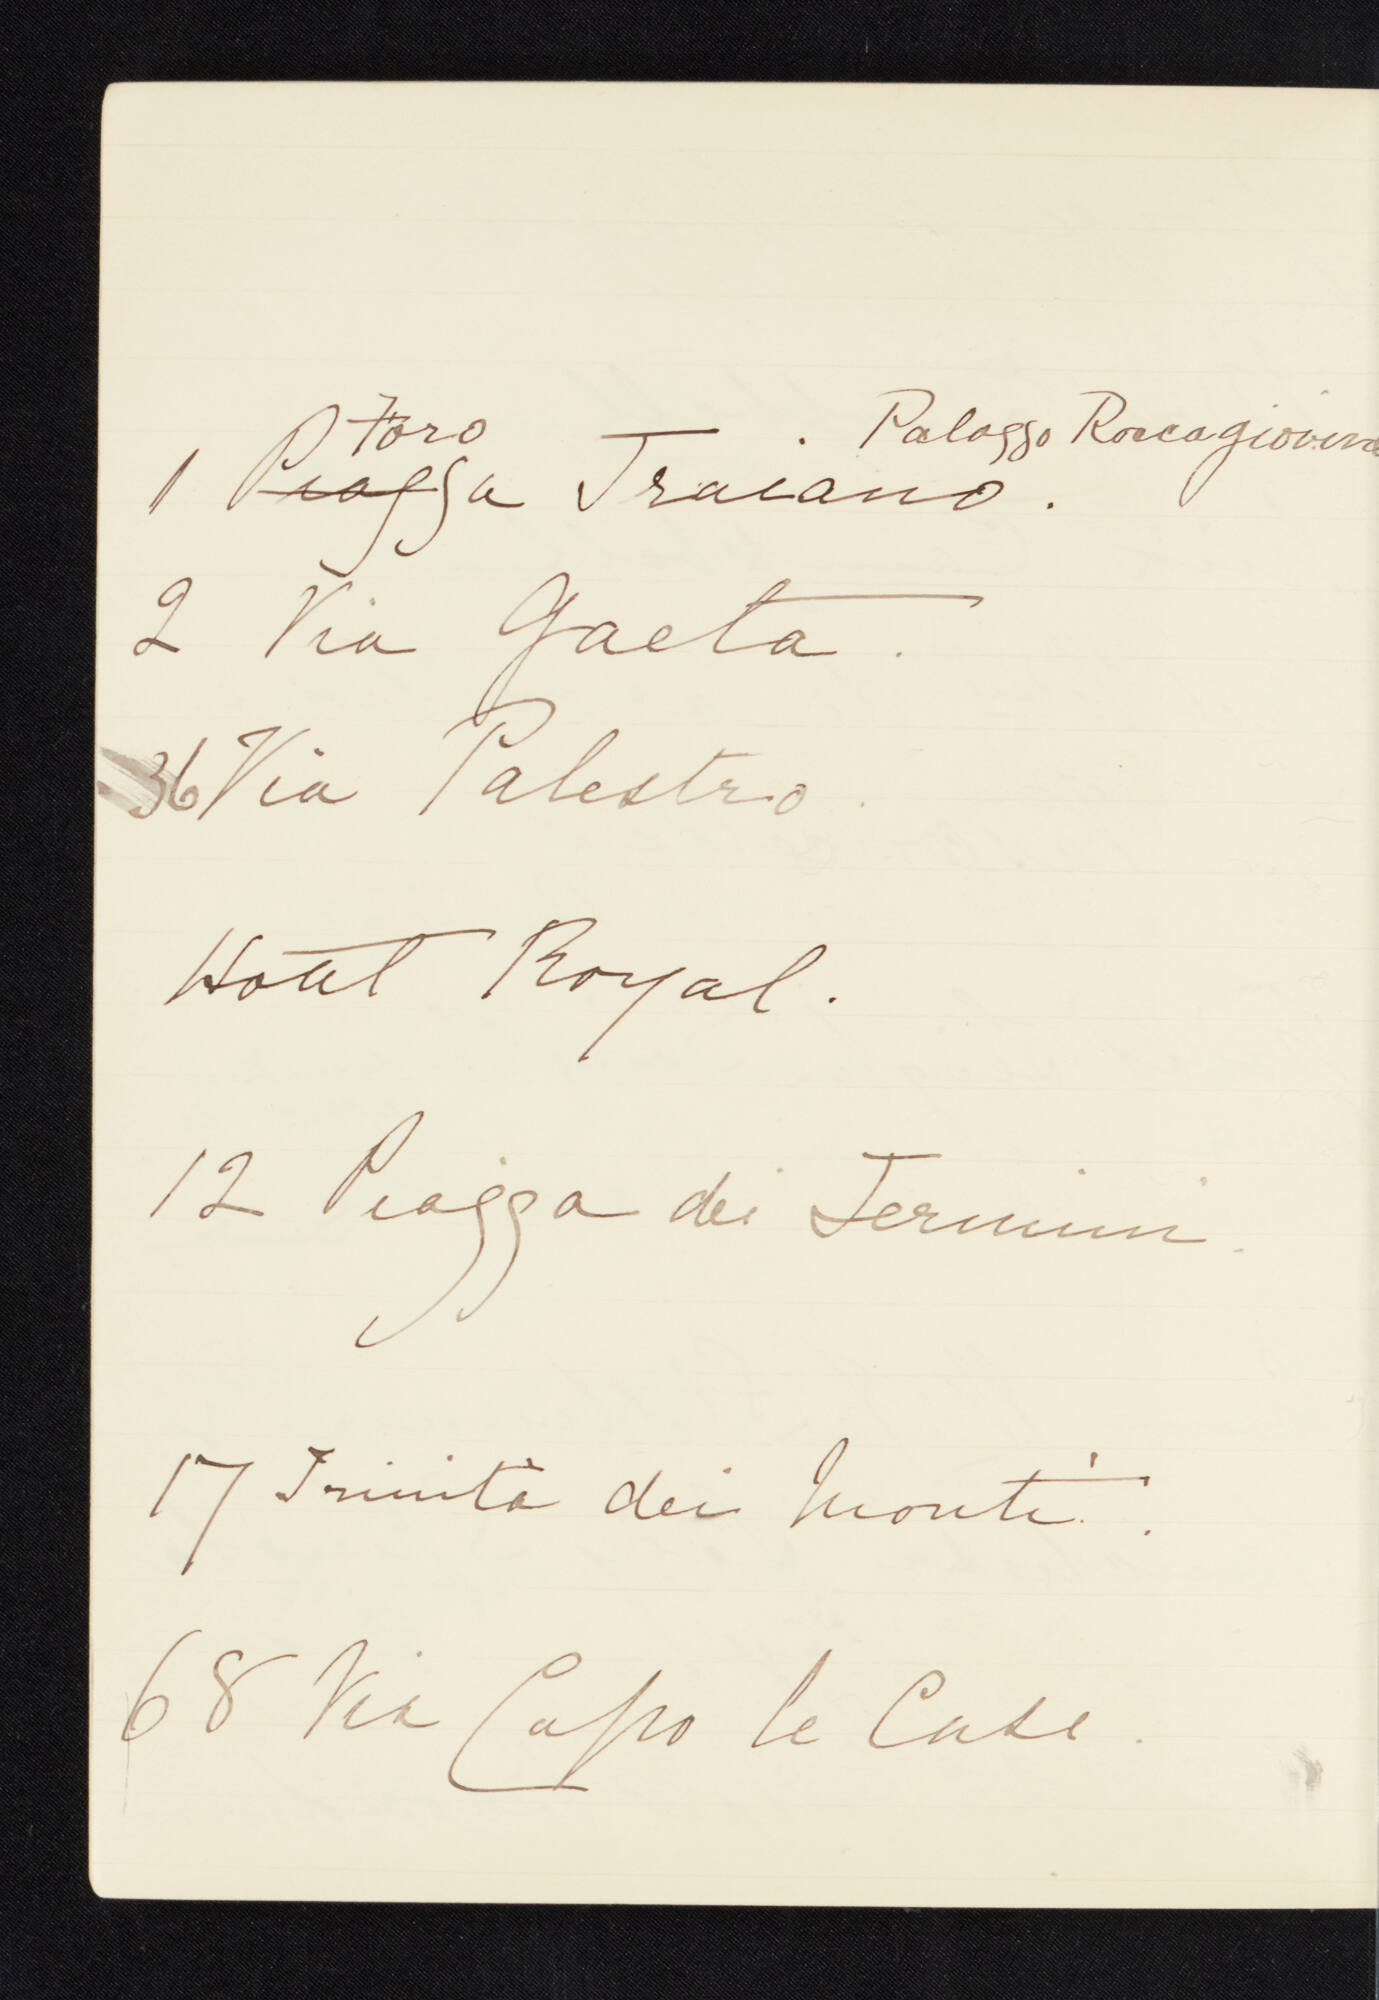 Foro . Palazzo Roccagiovine
1 Piazza Traiano.
2 Via Gaeta.
36 Via Palestro.
Hotel Royal.
12 Piazza dei Termini.
17 Trinità dei Monti.
68 Via Capo le Case.